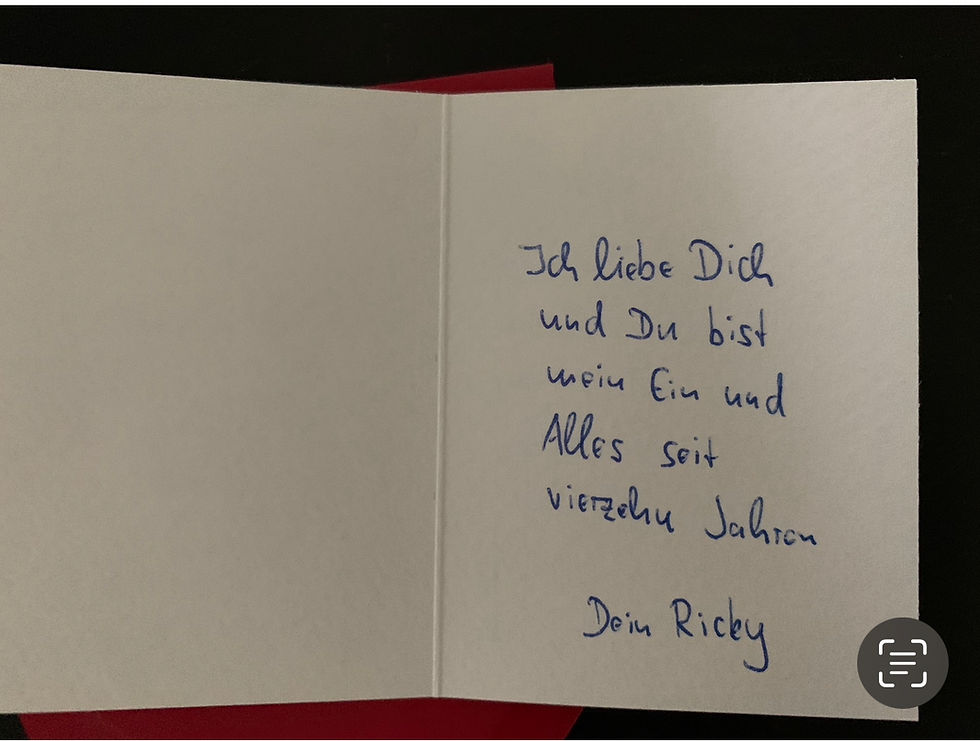 Ich liebe Dich
und Du bist
mein Ein und
Alles seit
vierzehn Jahren
Dein Ricky